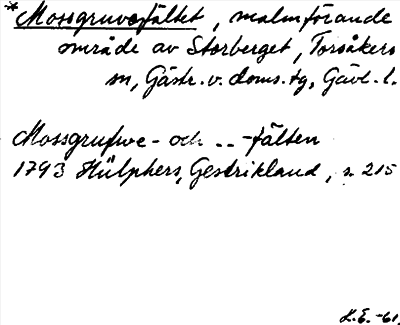 *Mossgruvefältet, malmförande
område av Storberget, Torsåkers
sn, Gästr. v. doms. tg, Gävl. l.
Mossgrufwe- och .. -fälten
1793 Hülphers, Gestrikland, s. 215
H.E. -61.